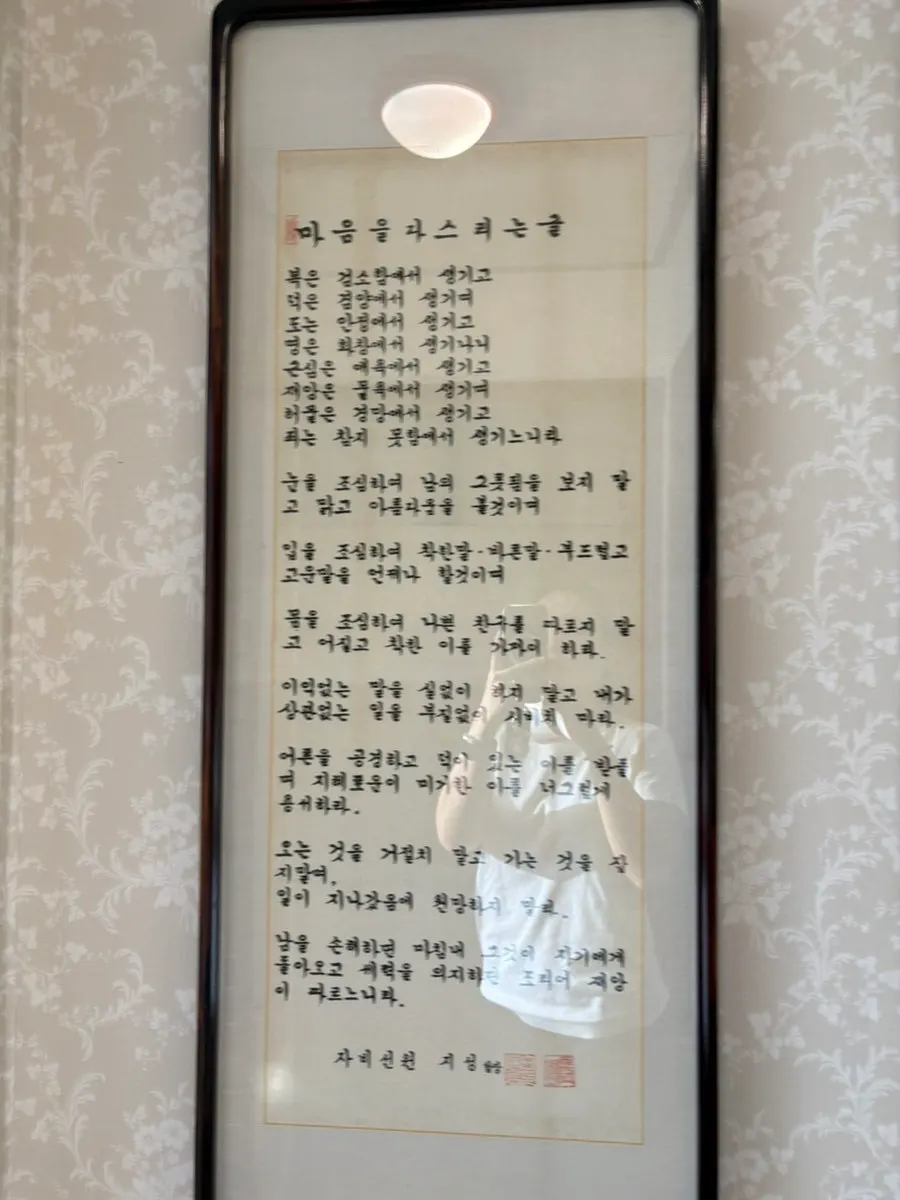 마음을 다스리는 글
복은 검소함에서 생기고
덕은 겸양에서 생기며
도는 안정에서 생기고
명은 화창에서 생기나니
근심은 애욕에서 생기고
재앙은 물욕에서 생기며
허물은 경망에서 생기고
죄는 참지 못함에서 생기느니라
눈을 조심하여 남의 그릇됨을 보지 말
고 맑고 아름다움을 볼것이며
입을 조심하여 착한말·바른말·부드럽고
고운말을 언제나 할것이며
몸을 조심하여 나쁜 친구를 따르지 말
고 어질고 착한 이를 가까이 하라.
이익없는 말을 실없이 하지 말고 내가
상관없는 일을 부질없이 시비치 마라.
어른을 공경하고 덕이 있는 이를 받들
며 지혜로운이 미거한 이를 너그럽게
용서하라.
오는 것을 거절치 말고 가는 것을 잡
지말며,
일이 지나갔음에 원망하지 말라.
남을 손해하면 마침내 그것이 자기에게
돌아오고 세력을 의지하면 도리어 재앙
이 따르느니라.
자비선원 지성